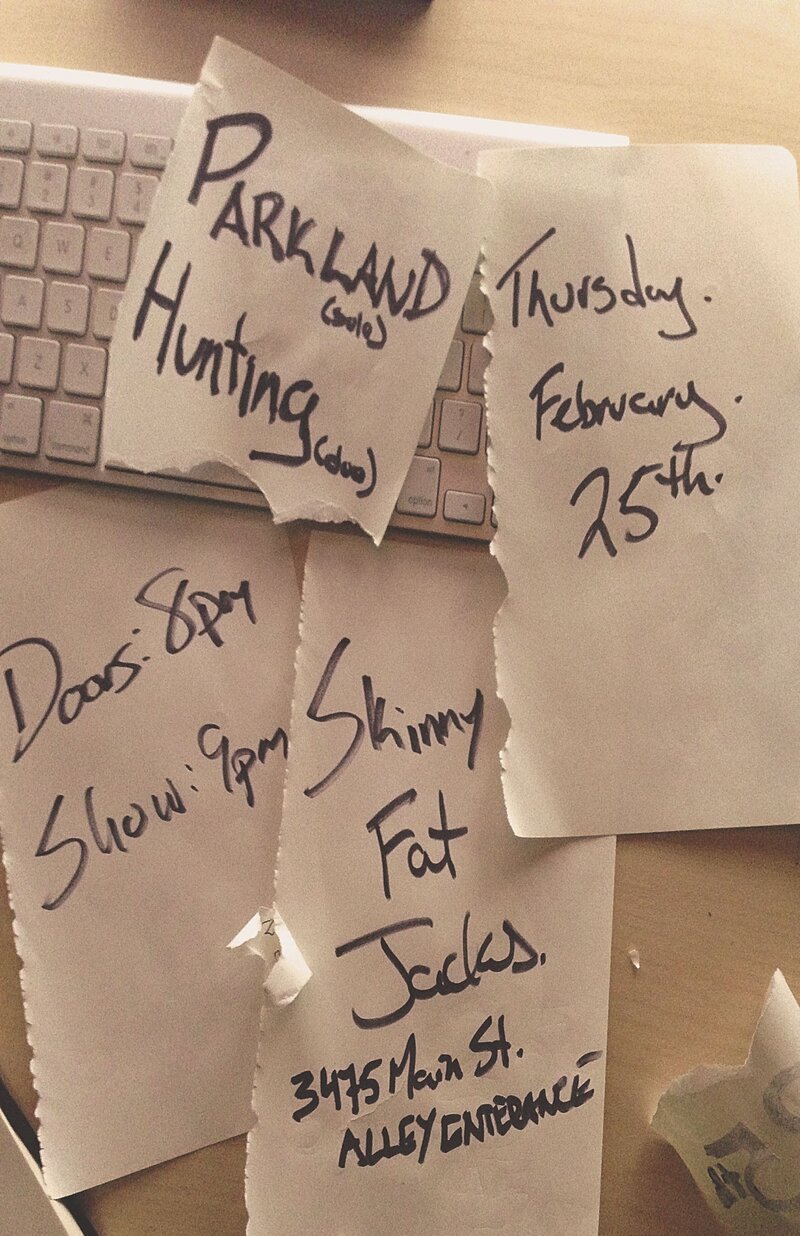 PARKLAND
(solo)
Hunting
(duo)
Thursday.
February.
25th.
Doors: 8pm
Show: 9pm
Skinny
Fat
Jacks.
3475 Main St.
ALLEY ENTERANCE
Q W E
A S D
Z X
option
option